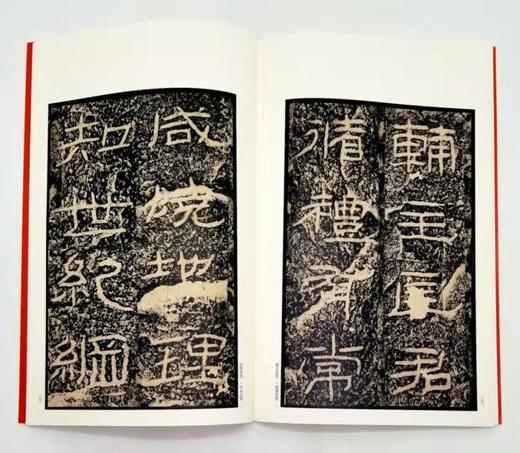 輔主匡君
循禮有常
咸曉地理
知世紀綱